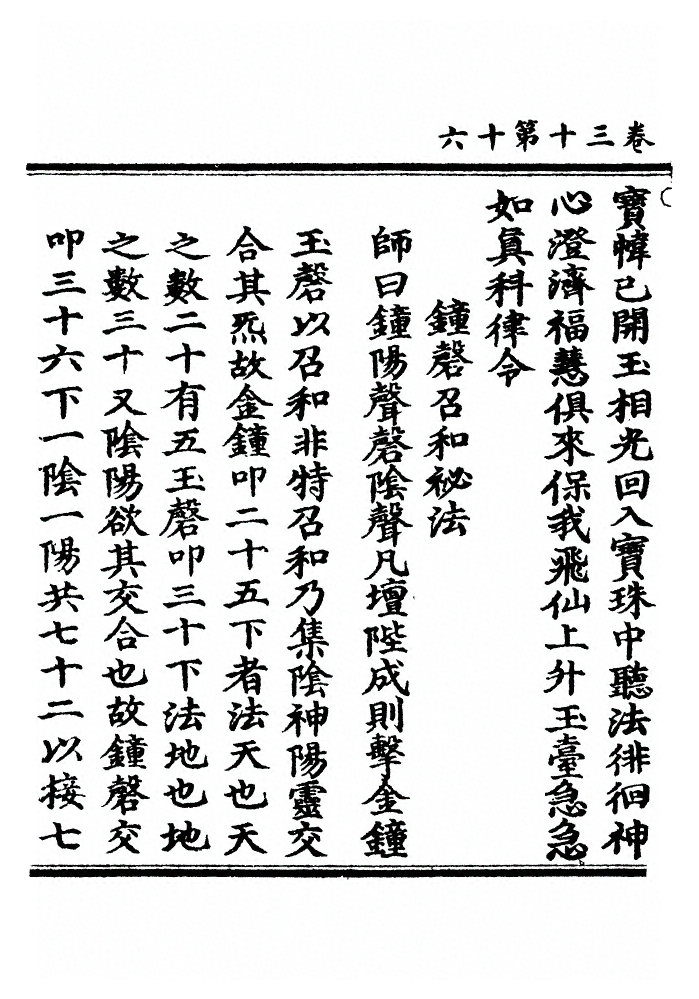 卷三十第十六
寶幃已開玉相光回入寶珠中聽法徘徊神
心澄濟福慧俱來保我飛仙上升玉臺急急
如眞科律令
鐘磬召和祕法
師曰鐘陽聲磬陰聲凡壇陛成則擊金鐘
玉磬以召和非特召和乃集陰神陽靈交
合其炁故金鐘叩二十五下者法天也天
之數二十有五玉磬叩三十下法地也地
之數三十又陰陽欲其交合也故鐘磬交
叩三十六下一陰一陽共七十二以接七